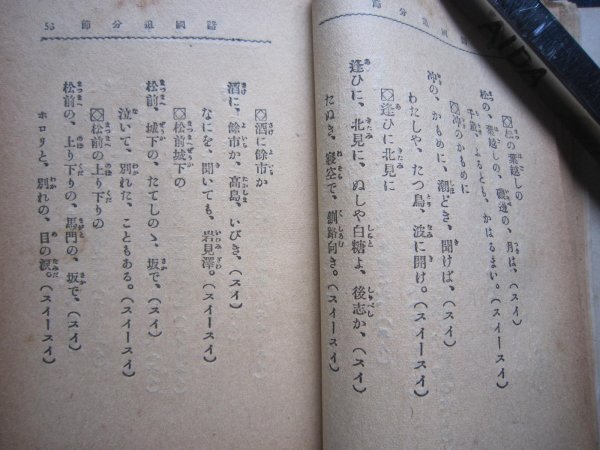 ◎松の葉越しの
松の、葉越しの、磯邊の、月は、(スイ)
千歳、ふるとも、かはるまい。(スイースイ)
◎沖のかもめに
沖の、かもめに、潮どき、聞けば、(スイ)
わたしや、たつ鳥、波に聞け。(スイースイ)
◎逢ひに北見に
逢ひに、北見に、ぬしや白糖よ、後志か、(スイ)
たぬき、寝空で、釧路向き。(スイースイ)
諸國追分節 53
◎酒に餘市か
酒に、餘市か、高島、いびき、(スイ)
なにを、聞いても、岩見澤。(スイースイ)
◎松前城下の
松前、城下の、たてしのゝ、坂で、(スイ)
泣いて、別れた、こともある。(スイースイ)
◎松前の上り下りの
松前の、上り下りの、馬門の、坂で、(スイ)
ホロリと、別れの、目の涙。(スイースイ)